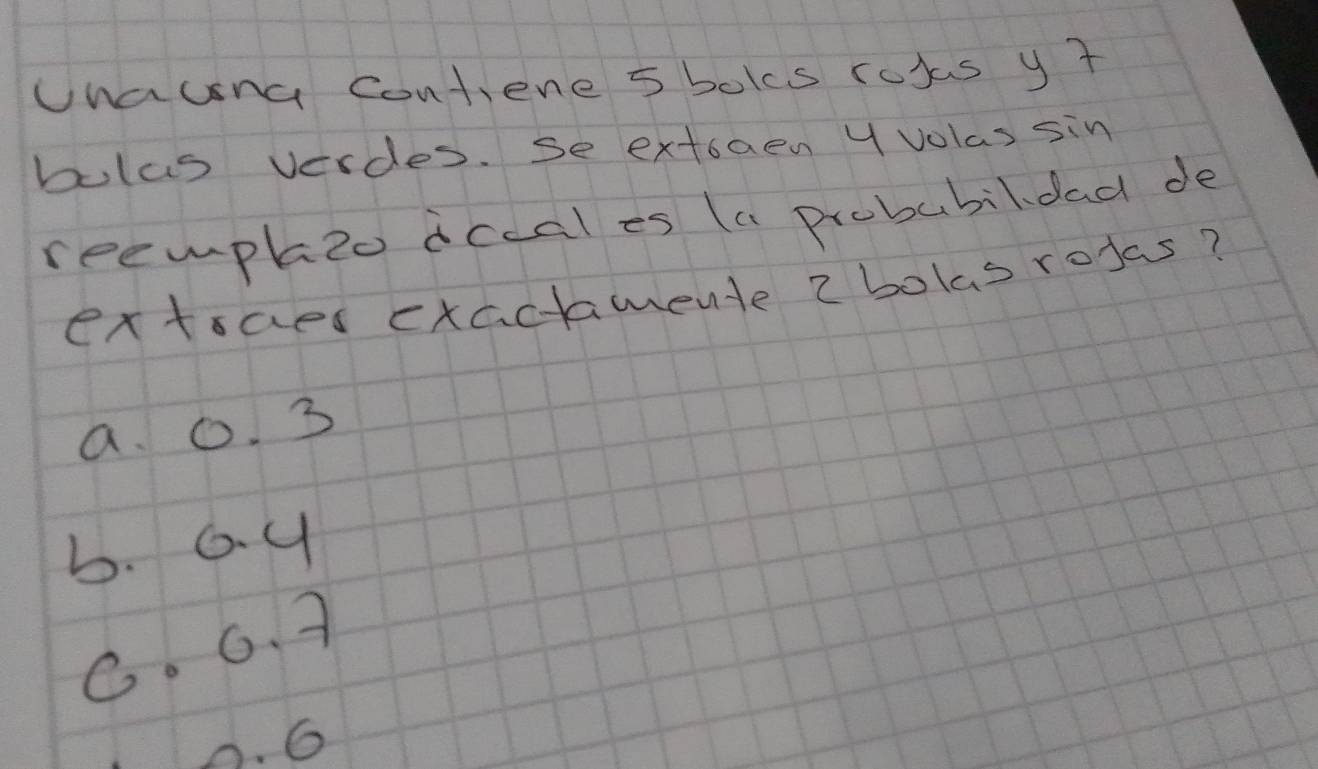 Una urna contiene 5 bolas rojas y 7
bolas verdes. Se extraen 4 volas sin
reemplazo ¿cual es la probabilidad de
extraer exactamente 2 bolas rojas?
a. 0.3
b. 0.4
c. 0.7
0.6